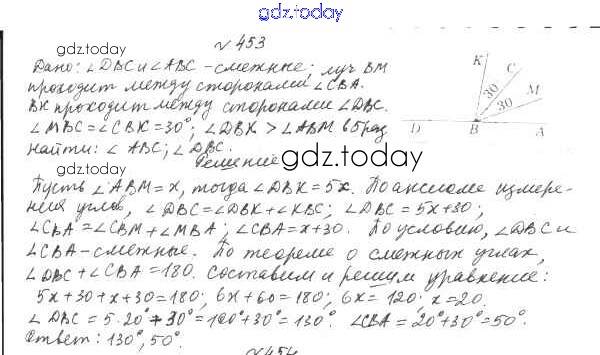 gdz.today
№ 453
gdz.today
Дано: ∠DBC и ∠ABC - смежные; луч BM
проходит между сторонами ∠CBA.
BK проходит между сторонами ∠DBC.
∠MBC = ∠CBK = 30°; ∠DBK > ∠ABM в 5 раз
найти: ∠ABC; ∠DBC.
K C M
30 30
D B A
Решение gdz.today
Пусть ∠ABM = x, тогда ∠DBK = 5x. По аксиоме измере-
ния углов, ∠DBC = ∠DBK + ∠KBC; ∠DBC = 5x+30;
∠CBA = ∠CBM + ∠MBA; ∠CBA = x+30. По условию, ∠DBC и
∠CBA - смежные. По теореме о смежных углах,
∠DBC + ∠CBA = 180. Составим и решим уравнение:
5x+30+x+30=180; 6x+60=180; 6x=120; x=20.
∠DBC = 5·20°+30°=100°+30°=130°. ∠CBA = 20°+30°=50°.
Ответ: 130°, 50°.
gdz.today
№ 454